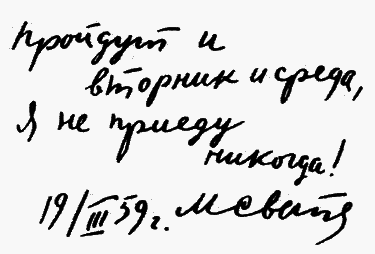 пройдут и
вторник и среда,
Я не приеду
никогда!
19/III 59 г. МСвет